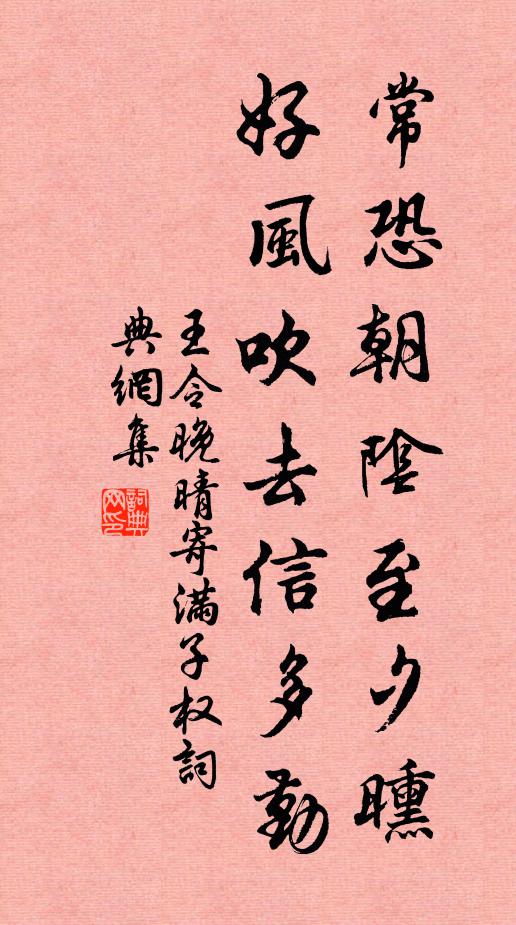 常恐朝陰至夕曛
好風吹去信多勤
王令晚晴寄滿子权詞
典網集
詞典網印